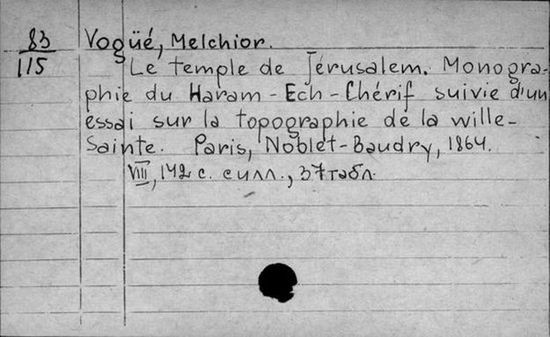 83
115
Vogüé, Melchior.
Le temple de Jérusalem. Monogra-
phie du Haram-Ech-Chérif suivie d'un
essai sur la topographie de la wille-
Sainte. Paris, Noblet-Baudry, 1864.
VIII, 142 с. с илл., 37 табл.